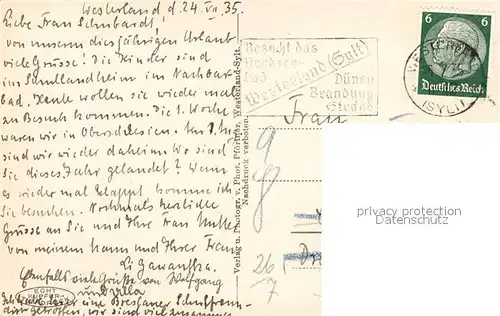 Westerland, d. 24. VII. 35.
Liebe Frau Schubardt,
von unserm diesjährigen Urlaub
viele Grüsse! Die Kinder sind
im Schullandheim im Nachbar
bad. Heute wollen sie wieder mal
zu Besuch kommen. Die 1. Woche
waren wir in Oberschlesien.
wir wieder daheim. Wo sind
Sie dieses Jahr gelandet? Wenn
es wieder mal klappt komme ich
Sie besuchen. Nochmals herzliche
Grüsse an Sie und Ihre Frau Mutter
von meinem Mann und Ihrer Frau
Ebenfalls viele Grüße von Wolfgang
und Ulla
Ich habe hier eine Breslauer Schulfreun-
din getroffen, wir sind viel zusammen
ECHT
KUPFER
Verlag u. Photogr. v. Phot. Pförtner, Westerland-Sylt.
Nachdruck verboten.
Besucht das
Nordsee-
bad
Westerland (Sylt)
Dünen
Brandung
Strand
6 6
Deutsches Reich
WESTERLAND
(SYLT)
Frau
26/7
privacy protection
watermark